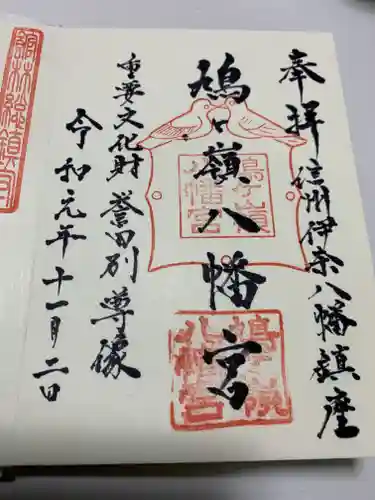 奉拝 信州伊奈八幡鎮座
鳩ヶ嶺八幡宮
重要文化財 誉田別尊像
令和元年十一月二日
鳩ヶ嶺
八幡宮